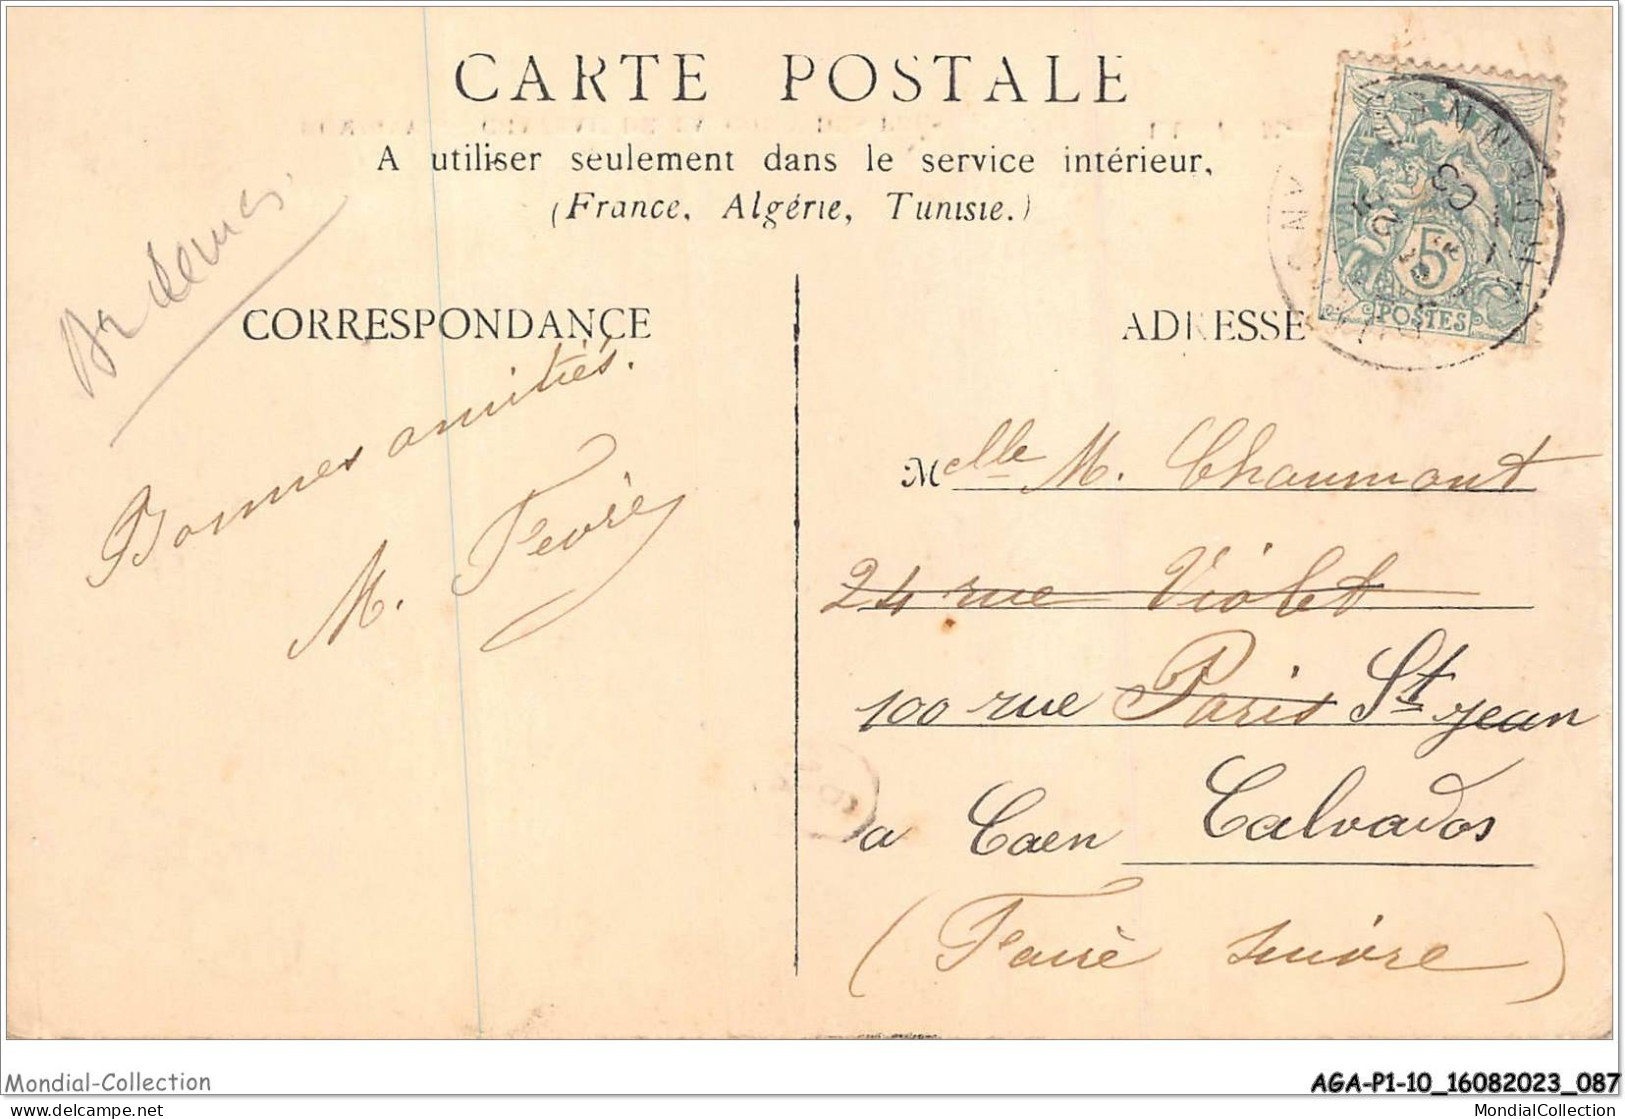 CARTE POSTALE
A utiliser seulement dans le service intérieur,
(France, Algérie, Tunisie.)
CORRESPONDANCE
ADRESSE
5
POSTES
Bonnes amitiés.
M. Fevre
Melle M. Chaumont
24 rue Violet
100 rue Paris St jean
a Caen Calvados
(Faire suivre)
Mondial-Collection
AGA-P1-10_16082023_087
delcampe.net
MondialCollection